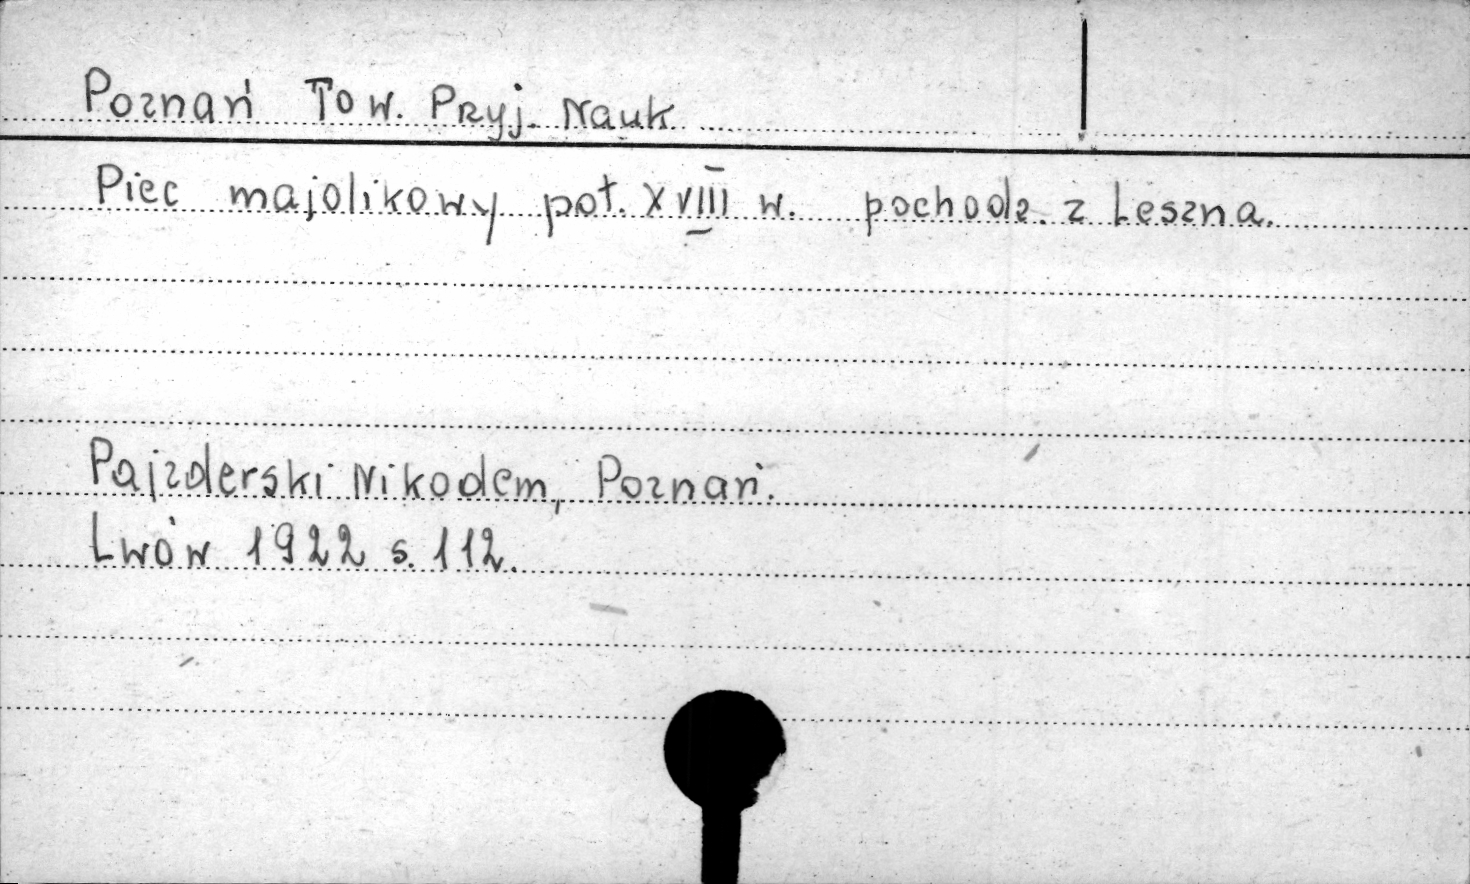 Poznań Tow. Przyj. Nauk
Piec majolikowy poł. XVIII w. pochodz. z Leszna.
Pajzderski Nikodem, Poznań.
Lwów 1922 s. 112.